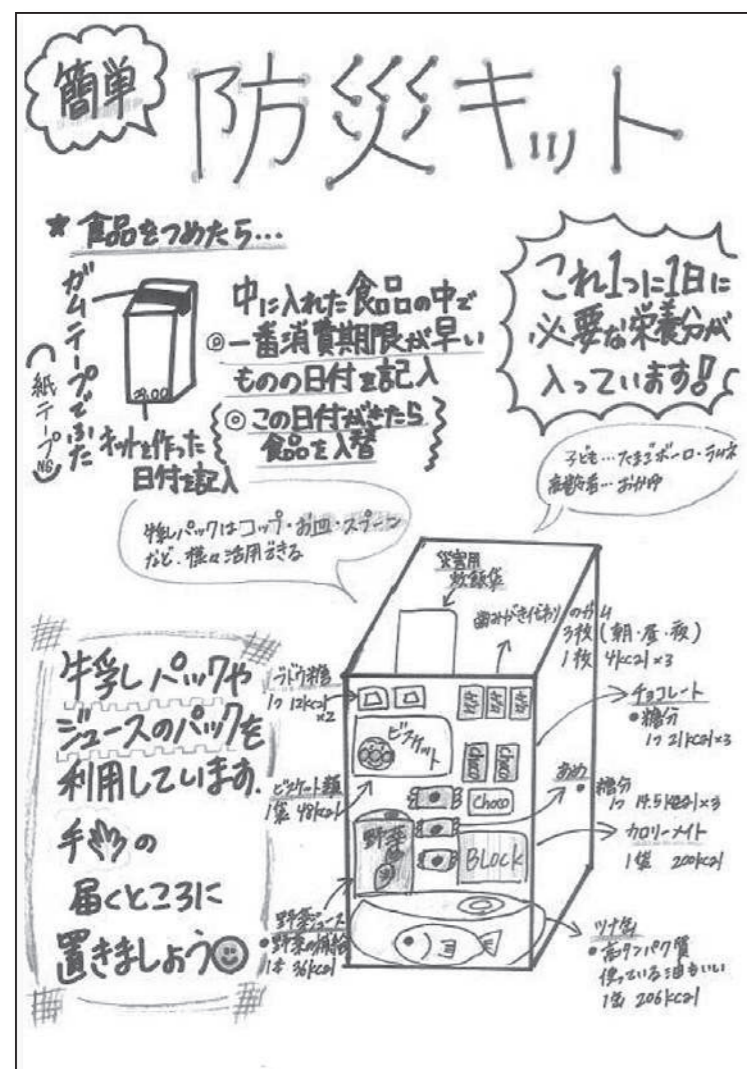 簡単
防災キット
★食品をつめたら…
ガムテープでふた
(紙テープNG)
キットを作った
日付を記入
中に入れた食品の中で
◎一番消費期限が早い
ものの日付を記入
◎この日付がきたら
食品を入替
これ1つに1日に
必要な栄養分が
入っています!!
子ども…たまごボーロ・ラムネ
高齢者…おかゆ
牛乳パックはコップ・お皿・スプーン
など、様々活用できる
牛乳パックや
ジュースのパックを
利用しています。
手の
届くところに
置きましょう
災害用
炊飯袋
歯みがき代わりのガム
3枚(朝・昼・夜)
1枚 4kcal×3
ブドウ糖
1つ 12kcal
×2
ガム
ガム
ガム
チョコレート
•糖分
1つ 21kcal×3
ビスケット
choco
choco
choco
あめ
•糖分
1つ 14.5kcal×3
ビスケット類
1袋 48kcal
カロリーメイト
1袋 200kcal
野菜
BLOCK
野菜ジュース
•野菜の補給
1本 36kcal
ツナ缶
•高タンパク質
使っている油もいい
1缶 206kcal